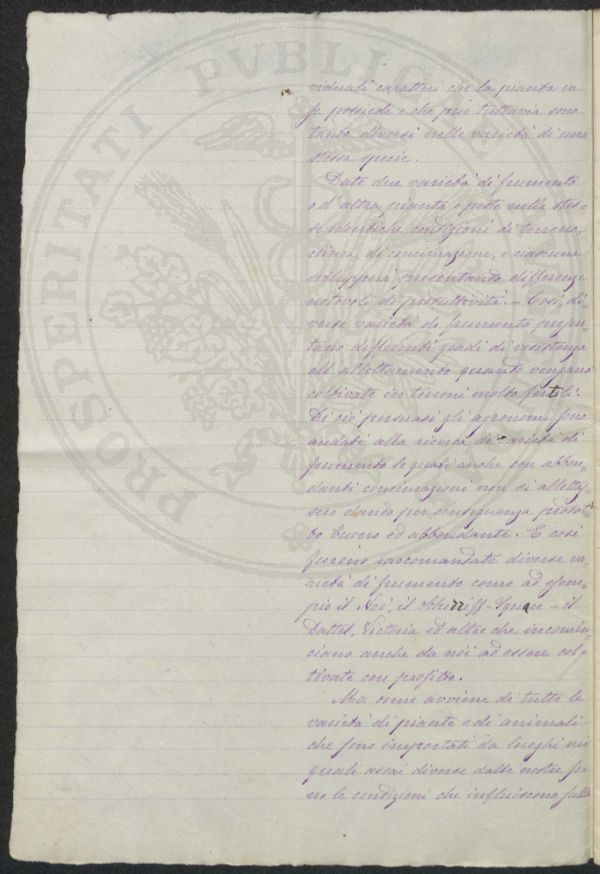 PROSPERITATI PUBLICAE
viduali caratteri che la pianta in
se possiede e che pur tuttavia sono
tanto diversi nelle varietà di una
stessa specie.
Date due varietà di frumento
o d'altra pianta, e poste nelle stes-
se identiche condizioni di terreno,
clima, di concimazione, e ciascuna
svilupperà presentando differenze
notevoli di produttività. - Così di-
verse varietà di frumento presen-
tano differenti gradi di resistenza
all'allettamento quando vengano
coltivate in terreni molto fertili.
Di ciò persuasi gli agronomi sono
andati alla ricerca di varietà di
frumento le quali anche con abbon-
danti concimazioni non si allettas-
sero dando per conseguenza prodot-
to buono ed abbondante. E così
furono raccomandate diverse va-
rietà di frumento come ad esem-
pio il Noè, il Scherriff-Square - il
Dattel, Victoria ed altre che incomin-
ciano anche da noi ad essere col-
tivate con profitto.
Ma come avviene di tutte le
varietà di piante e di animali
che sono importati da luoghi nei
quali assai diverse dalle nostre so-
no le condizioni che influiscono sulla